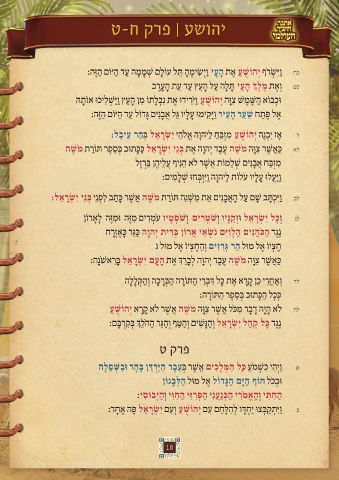 יהושע | פרק ח-ט
כח וַיִּשְׂרֹף יְהוֹשֻׁעַ אֶת הָעָי וַיְשִׂימֶהָ תֵּל עוֹלָם שְׁמָמָה עַד הַיּוֹם הַזֶּה:
כט וְאֶת מֶלֶךְ הָעַי תָּלָה עַל הָעֵץ עַד עֵת הָעָרֶב
וּכְבוֹא הַשֶּׁמֶשׁ צִוָּה יְהוֹשֻׁעַ וַיֹּרִידוּ אֶת נִבְלָתוֹ מִן הָעֵץ וַיַּשְׁלִיכוּ אוֹתָהּ
אֶל פֶּתַח שַׁעַר הָעִיר וַיָּקִימוּ עָלָיו גַּל אֲבָנִים גָּדוֹל עַד הַיּוֹם הַזֶּה:
ל אָז יִבְנֶה יְהוֹשֻׁעַ מִזְבֵּחַ לַיהוָה אֱלֹהֵי יִשְׂרָאֵל בְּהַר עֵיבָל:
לא כַּאֲשֶׁר צִוָּה מֹשֶׁה עֶבֶד יְהוָה אֶת בְּנֵי יִשְׂרָאֵל כַּכָּתוּב בְּסֵפֶר תּוֹרַת מֹשֶׁה
מִזְבַּח אֲבָנִים שְׁלֵמוֹת אֲשֶׁר לֹא הֵנִיף עֲלֵיהֶן בַּרְזֶל
וַיַּעֲלוּ עָלָיו עֹלוֹת לַיהוָה וַיִּזְבְּחוּ שְׁלָמִים:
לב וַיִּכְתָּב שָׁם עַל הָאֲבָנִים אֵת מִשְׁנֵה תּוֹרַת מֹשֶׁה אֲשֶׁר כָּתַב לִפְנֵי בְּנֵי יִשְׂרָאֵל:
לג וְכָל יִשְׂרָאֵל וּזְקֵנָיו וְשֹׁטְרִים וְשֹׁפְטָיו עֹמְדִים מִזֶּה וּמִזֶּה לָאָרוֹן
נֶגֶד הַכֹּהֲנִים הַלְוִיִּם נֹשְׂאֵי אֲרוֹן בְּרִית יְהוָה כַּגֵּר כָּאֶזְרָח
חֶצְיוֹ אֶל מוּל הַר גְּרִזִים וְהַחֶצְיוֹ אֶל מוּל
כַּאֲשֶׁר צִוָּה מֹשֶׁה עֶבֶד יְהוָה לְבָרֵךְ אֶת הָעָם יִשְׂרָאֵל בָּרִאשֹׁנָה:
לד וְאַחֲרֵי כֵן קָרָא אֶת כָּל דִּבְרֵי הַתּוֹרָה הַבְּרָכָה וְהַקְּלָלָה
כְּכָל הַכָּתוּב בְּסֵפֶר הַתּוֹרָה:
לה לֹא הָיָה דָבָר מִכֹּל אֲשֶׁר צִוָּה מֹשֶׁה אֲשֶׁר לֹא קָרָא יְהוֹשֻׁעַ
נֶגֶד כָּל קְהַל יִשְׂרָאֵל וְהַנָּשִׁים וְהַטַּף וְהַגֵּר הַהֹלֵךְ בְּקִרְבָּם:
פרק ט
א וַיְהִי כִשְׁמֹעַ כָּל הַמְּלָכִים אֲשֶׁר בְּעֵבֶר הַיַּרְדֵּן בָּהָר וּבַשְּׁפֵלָה
וּבְכֹל חוֹף הַיָּם הַגָּדוֹל אֶל מוּל הַלְּבָנוֹן
הַחִתִּי וְהָאֱמֹרִי הַכְּנַעֲנִי הַפְּרִזִּי הַחִוִּי וְהַיְבוּסִי:
ב וַיִּתְקַבְּצוּ יַחְדָּו לְהִלָּחֵם עִם יְהוֹשֻׁעַ וְעִם יִשְׂרָאֵל פֶּה אֶחָד:
18